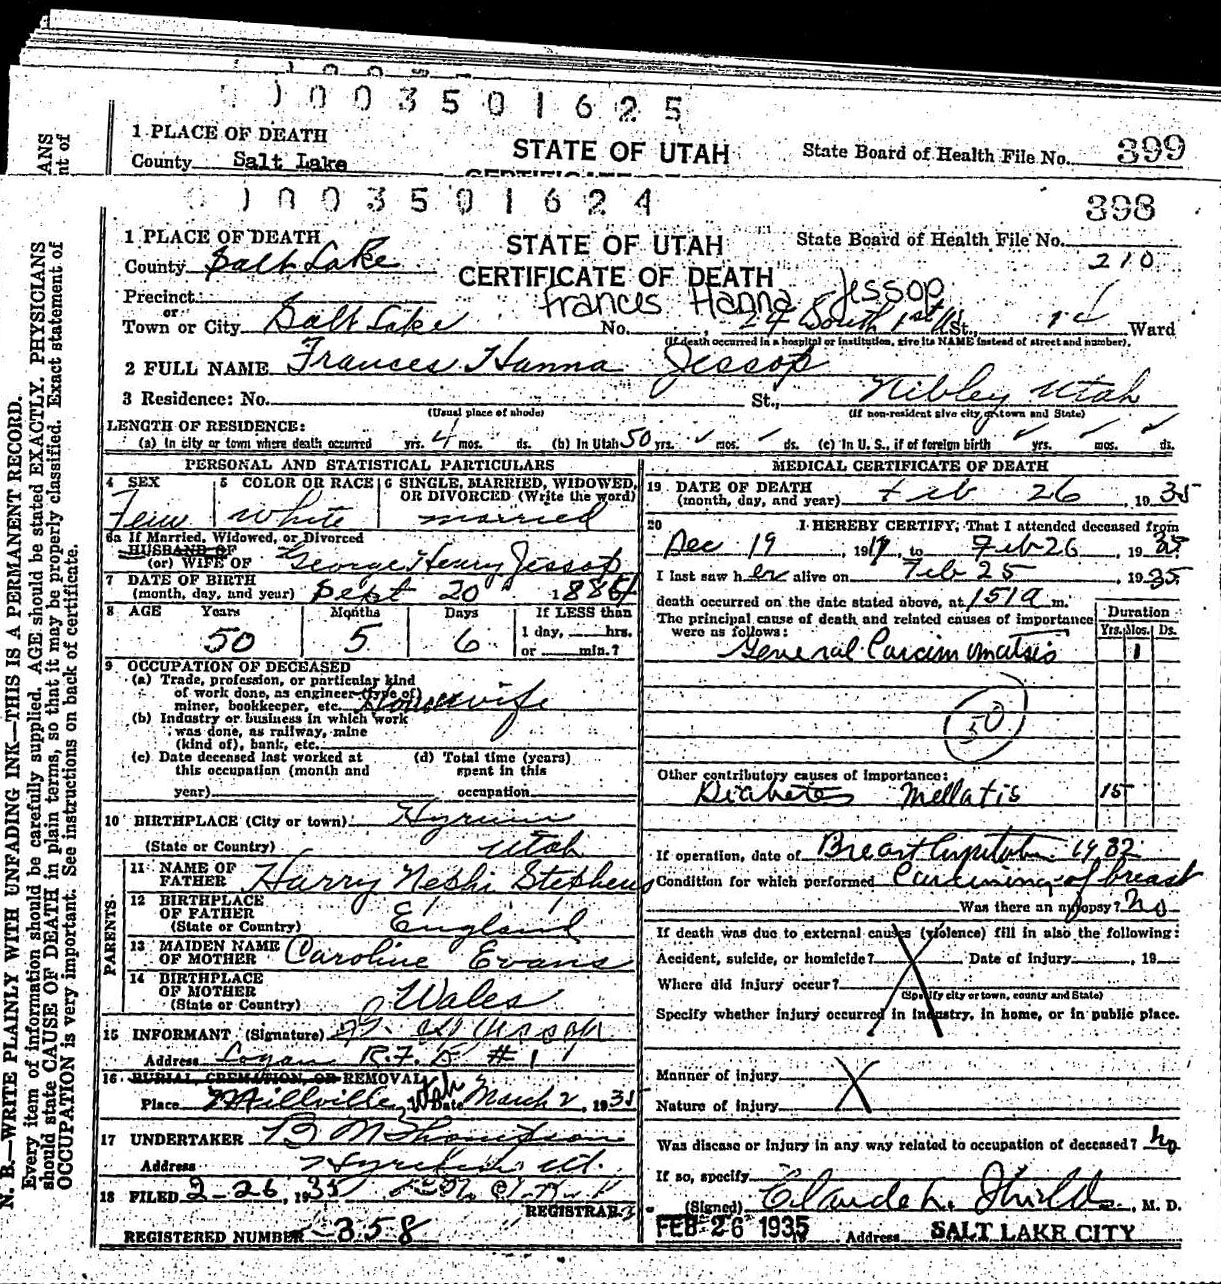 1 0 0 3 5 0 1 6 2 5
1 PLACE OF DEATH
County Salt Lake
STATE OF UTAH
State Board of Health File No. 399
1 0 0 3 5 0 1 6 2 4
398
1 PLACE OF DEATH
STATE OF UTAH
State Board of Health File No.
210
County Salt Lake
CERTIFICATE OF DEATH
Precinct
Frances Hanna Jessop
or
Town or City Salt Lake No. 24 South 1st W St., 14 Ward
(If death occurred in a hospital or institution, give its NAME instead of street and number).
2 FULL NAME Frances Hanna Jessop
3 Residence: No. St., Nibley Utah
(Usual place of abode) (If non-resident give city or town and State)
LENGTH OF RESIDENCE:
(a) In city or town where death occurred yrs. 4 mos. ds. (b) In Utah 50 yrs. mos. ds. (c) In U. S., if of foreign birth yrs. mos. ds.
PERSONAL AND STATISTICAL PARTICULARS
4 SEX 5 COLOR OR RACE 6 SINGLE, MARRIED, WIDOWED, OR DIVORCED (Write the word)
Fem White married
6a If Married, Widowed, or Divorced
HUSBAND OF
(or) WIFE OF George Henry Jessop
7 DATE OF BIRTH
(month, day, and year) Sept 20 1884
8 AGE Years Months Days If LESS than
50 5 6 1 day, hrs.
or min.?
9 OCCUPATION OF DECEASED
(a) Trade, profession, or particular kind
of work done, as engineer (type of)
miner, bookkeeper, etc. Housewife
(b) Industry or business in which work
was done, as railway, mine
(kind of), bank, etc.
(c) Date deceased last worked at (d) Total time (years)
this occupation (month and spent in this
year) occupation
10 BIRTHPLACE (City or town) Hyrum
(State or Country) Utah
PARENTS
11 NAME OF
FATHER Harry Nephi Stephens
12 BIRTHPLACE
OF FATHER
(State or Country) England
13 MAIDEN NAME
OF MOTHER Caroline Evans
14 BIRTHPLACE
OF MOTHER
(State or Country) Wales
15 INFORMANT (Signature) G. H. Jessop
Address Logan R.F.D #1
16 BURIAL, CREMATION, OR REMOVAL
Place Millville, Utah Date March 2, 1935
17 UNDERTAKER B M Thompson
Address Hyrum Ut.
18 FILED 2-26, 1935
REGISTRAR
REGISTERED NUMBER 358
MEDICAL CERTIFICATE OF DEATH
19 DATE OF DEATH
(month, day, and year) Feb 26 1935
20 I HEREBY CERTIFY, That I attended deceased from
Dec 19 19 to Feb 26, 1935
I last saw her alive on Feb 25 1935
death occurred on the date stated above, at 151 a m.
The principal cause of death and related causes of importance
were as follows:
Duration
Yrs. Mos. Ds.
General Carcinomatsis 1
50
Other contributory causes of importance:
Diabetes Mellatis 15
If operation, date of Breast 1932
Condition for which performed Carcinoma of breast
Was there an autopsy? No
If death was due to external causes (violence) fill in also the following:
Accident, suicide, or homicide? Date of injury , 19
Where did injury occur?
(Specify city or town, county and State)
Specify whether injury occurred in industry, in home, or in public place.
Manner of injury
Nature of injury
Was disease or injury in any way related to occupation of deceased? No
If so, specify
(Signed) Claude L. Shields, M. D.
FEB 26 1935 Address SALT LAKE CITY
N. B.—WRITE PLAINLY WITH UNFADING INK—THIS IS A PERMANENT RECORD.
Every item of information should be carefully supplied. AGE should be stated EXACTLY. PHYSICIANS
should state CAUSE OF DEATH in plain terms, so that it may be properly classified. Exact statement of
OCCUPATION is very important. See instructions on back of certificate.